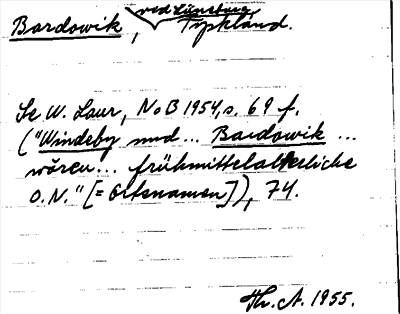 Bardowik, ved Lüneburg, Tyskland.
Se W. Laur, NoB 1954, s. 69 f.
("Windeby und ... Bardowik ...
wären ... frühmittelalterliche
O.N." [= Ortsnamen]), 74.
Th. A. 1955.